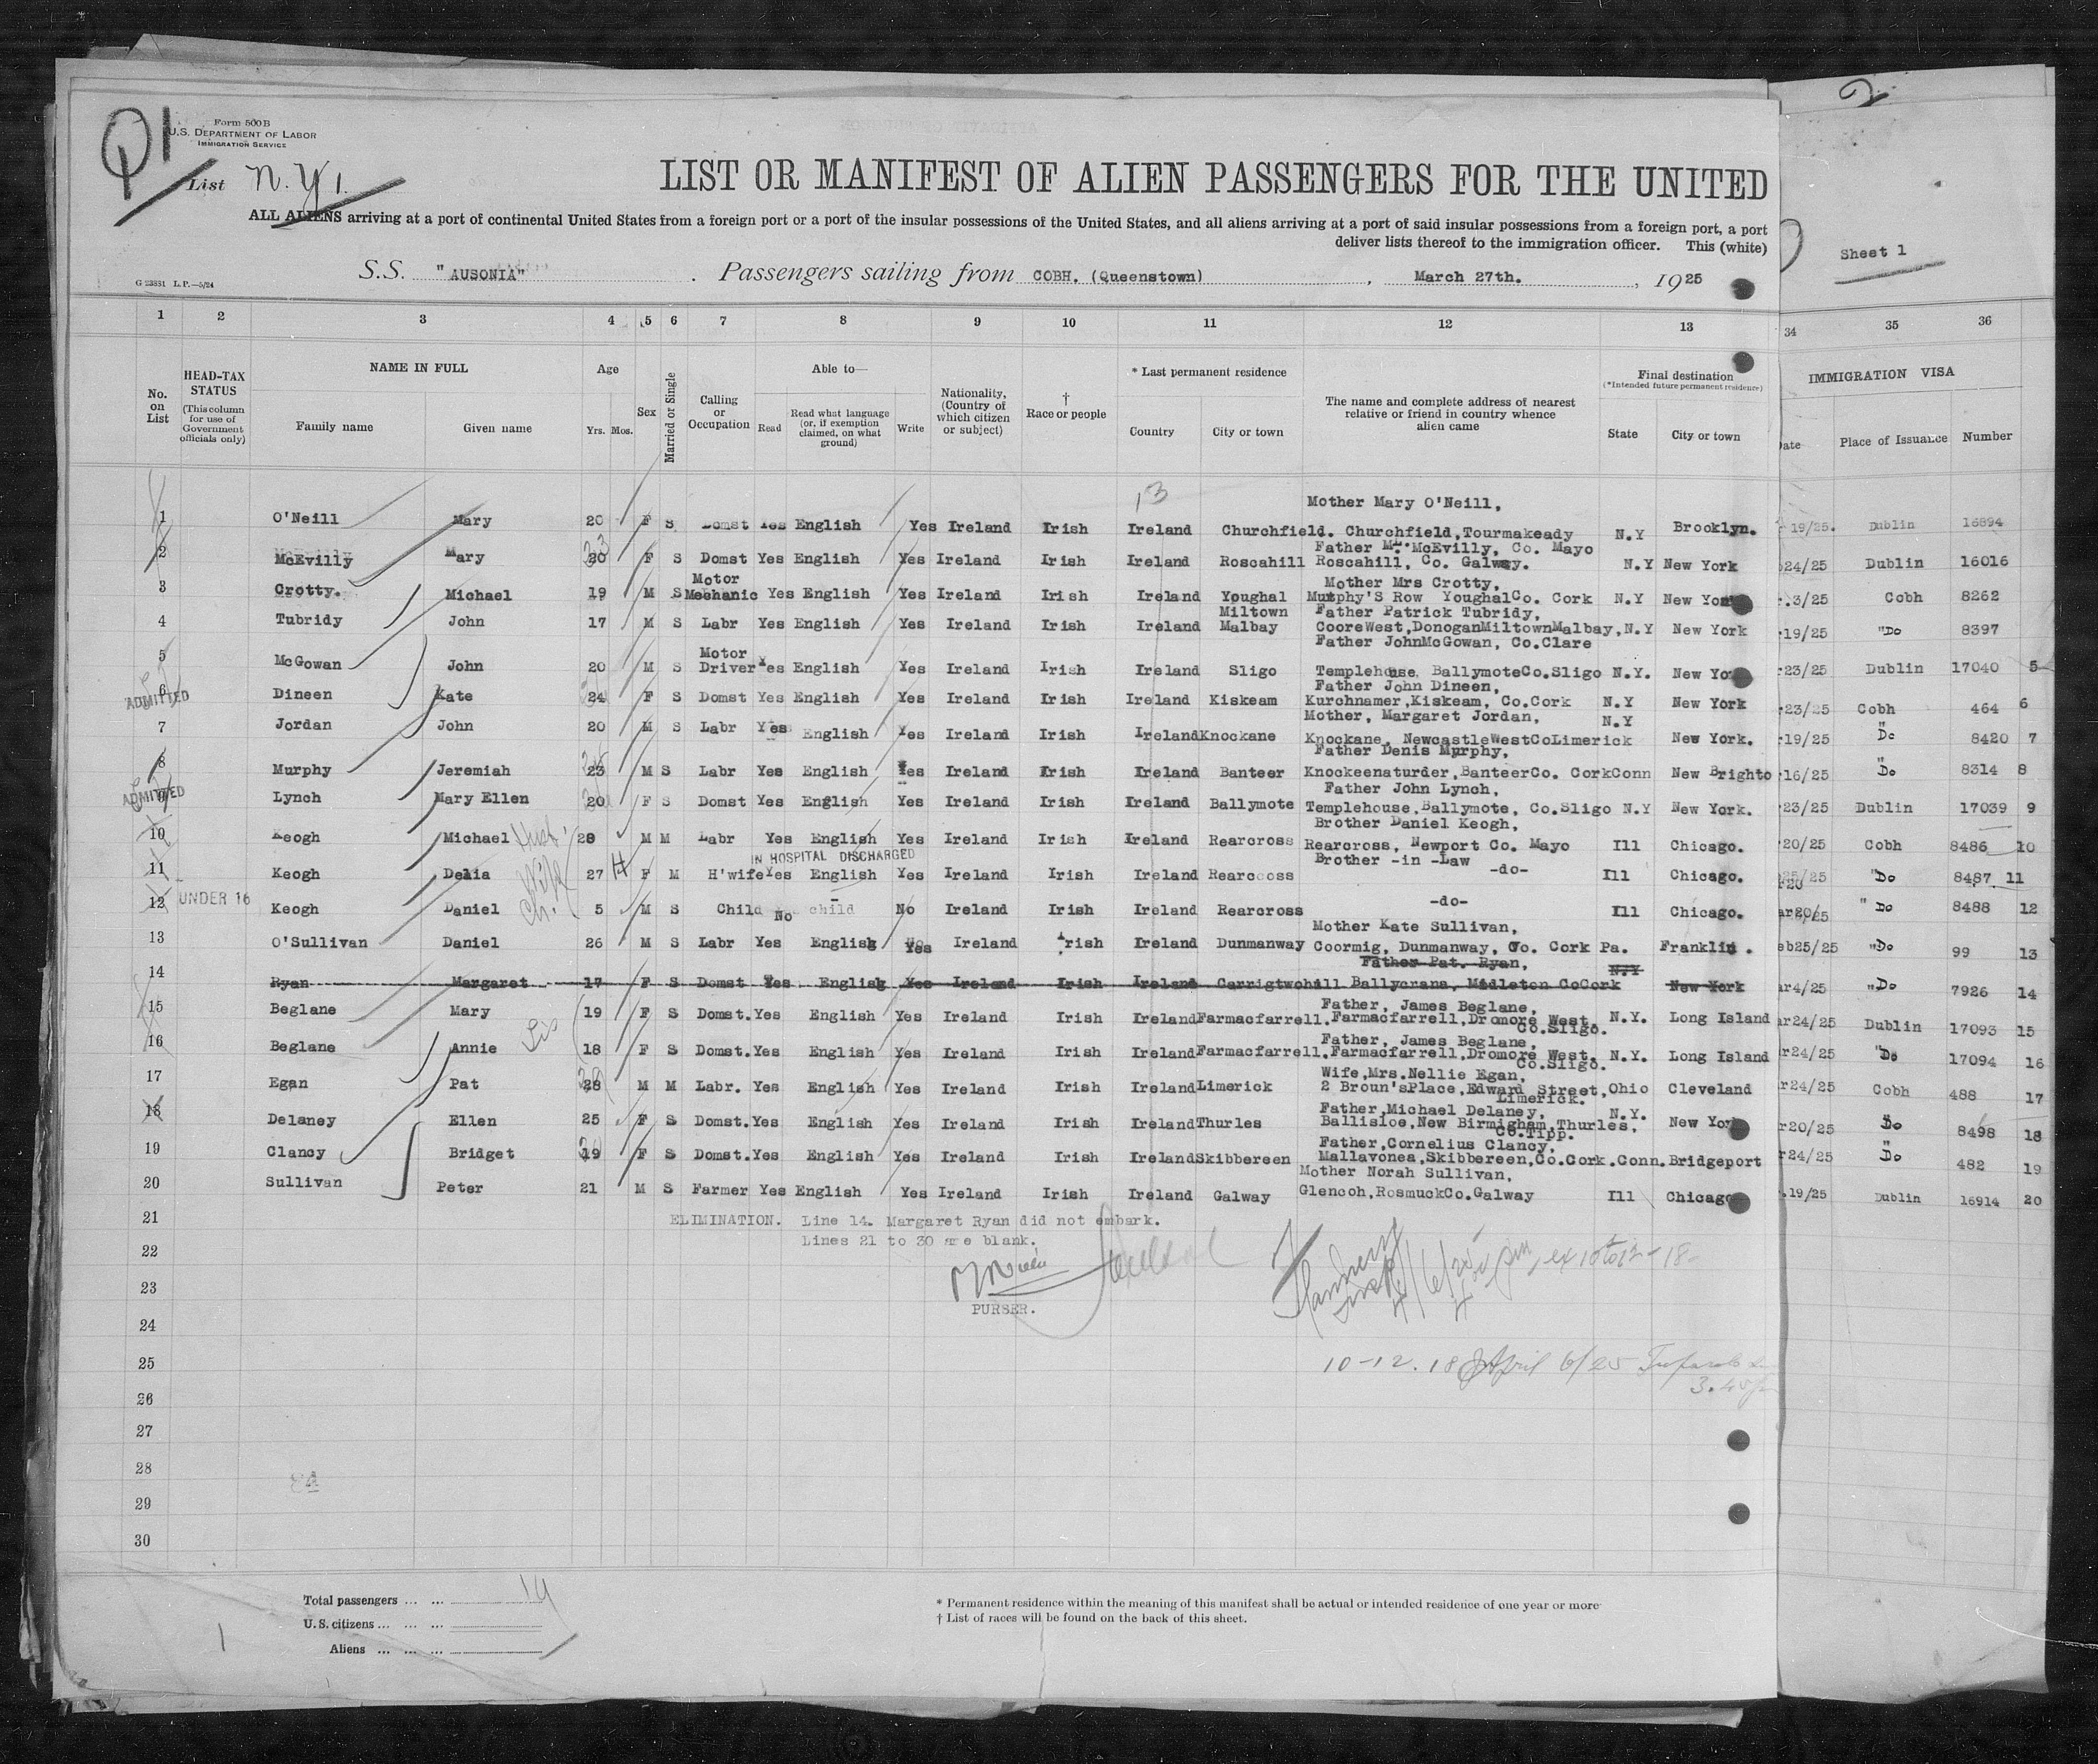 Q1
Form 500B
U.S. DEPARTMENT OF LABOR
IMMIGRATION SERVICE
List N.Y. 1.
2
LIST OR MANIFEST OF ALIEN PASSENGERS FOR THE UNITED
ALL ALIENS arriving at a port of continental United States from a foreign port or a port of the insular possessions of the United States, and all aliens arriving at a port of said insular possessions from a foreign port, a port
deliver lists thereof to the immigration officer. This (white)
Sheet 1
S.S. "AUSONIA" . Passengers sailing from COBH. (Queenstown) , March 27th. , 1925
G 23831 L.P.—5/24
1 2 3 4 5 6 7 8 9 10 11 12 13 34 35 36
No. on List
HEAD-TAX STATUS (This column for use of Government officials only)
NAME IN FULL
Family name Given name
Age
Yrs. Mos.
Sex
Married or Single
Calling or Occupation
Able to—
Read
Read what language (or, if exemption claimed, on what ground)
Write
Nationality, (Country of which citizen or subject)
† Race or people
* Last permanent residence
Country City or town
The name and complete address of nearest relative or friend in country whence alien came
Final destination
(*Intended future permanent residence)
State City or town
IMMIGRATION VISA
Date Place of Issuance Number
13
Mother Mary O'Neill,
1 O'Neill Mary 20 F S Domst Yes English Yes Ireland Irish Ireland Churchfield. Churchfield,Tourmakeady N.Y Brooklyn. 19/25. Dublin 16894
Father Ml. McEvilly, Co. Mayo
2 McEvilly Mary 20 F S Domst Yes English Yes Ireland Irish Ireland Roscahill Roscahill, Co. Galway. N.Y New York 24/25 Dublin 16016
Motor Mother Mrs Crotty,
3 Crotty. Michael 19 M S Mechanic Yes English Yes Ireland Irish Ireland Youghal Murphy'S Row YoughalCo. Cork N.Y New York .3/25 Cobh 8262
Miltown Father Patrick Tubridy,
4 Tubridy John 17 M S Labr Yes English Yes Ireland Irish Ireland Malbay CooreWest,DonoganMiltownMalbay,N.Y New York 19/25 "Do 8397
Motor Father JohnMcGowan, Co.Clare
5 McGowan John 20 M S Driver Yes English Yes Ireland Irish Ireland Sligo Templehouse, BallymoteCo.Sligo N.Y. New York 23/25 Dublin 17040 5
Father John Dineen,
ADMITTED
6 Dineen Kate 24 F S Domst Yes English Yes Ireland Irish Ireland Kiskeam Kurchnamer,Kiskeam, Co.Cork N.Y New York 23/25 Cobh 464 6
Mother, Margaret Jordan, N.Y
7 Jordan John 20 M S Labr Yes English Yes Ireland Irish IrelandKnockane Knockane, NewcastleWestCoLimerick New York. 19/25 " Do 8420 7
Father Denis Murphy,
8 Murphy Jeremiah 23 M S Labr Yes English Yes Ireland Irish Ireland Banteer Knockeenaturder,BanteerCo. CorkConn New Brighto 16/25 " Do 8314 8
Father John Lynch,
ADMITTED
9 Lynch Mary Ellen 20 F S Domst Yes English Yes Ireland Irish Ireland Ballymote Templehouse,Ballymote, Co.Sligo N.Y New York. 23/25 Dublin 17039 9
Brother Daniel Keogh,
10 Keogh Michael Hust. 28 M M Labr Yes English Yes Ireland Irish Ireland Rearcross Rearcross, Newport Co. Mayo Ill Chicago. 20/25 Cobh 8486 10
IN HOSPITAL DISCHARGED
Brother -in -Law
11 Keogh Delia Wife 27 H F M H'wife Yes English Yes Ireland Irish Ireland Rearccoss -do- Ill Chicago. 25/25 20 "Do 8487 11
12 UNDER 16 Keogh Daniel Ch. 5 M S Child No child No Ireland Irish Ireland Rearcross -do- Ill Chicago. ar20/25 " Do 8488 12
Mother Kate Sullivan,
13 O'Sullivan Daniel 26 M S Labr Yes English Yes Ireland Irish Ireland Dunmanway Coormig, Dunmanway, Co. Cork Pa. Franklin . eb25/25 "Do 99 13
Father Pat. Ryan, N.Y
14 Ryan Margaret 17 F S Domst Yes English Yes Ireland Irish Ireland Carrigtwohill Ballycrana, Midleton CoCork New York ar4/25 "Do 7926 14
Father, James Beglane,
15 Beglane Mary 19 F S Domst. Yes English Yes Ireland Irish IrelandFarmacfarrell.Farmacfarrell,Dromore West, N.Y. Long Island ar24/25 Dublin 17093 15
Co.Sligo.
Sis
Father, James Beglane,
16 Beglane Annie 18 F S Domst. Yes English Yes Ireland Irish IrelandFarmacfarrell.Farmacfarrell,Dromore West. N.Y. Long Island r24/25 "Do 17094 16
Co.Sligo.
Wife,Mrs.Nellie Egan,
17 Egan Pat 28 M M Labr. Yes English Yes Ireland Irish IrelandLimerick 2 Broun'sPlace,Edward Street,Ohio Cleveland r24/25 Cobh 488 17
Limerick.
Father,Michael Delaney, N.Y.
18 Delaney Ellen 25 F S Domst. Yes English Yes Ireland Irish IrelandThurles Ballisloe,New Birmigham,Thurles, New York r20/25 " Do 8498 18
Co.Tipp.
Father,Cornelius Clancy,
19 Clancy Bridget 19 F S Domst. Yes English Yes Ireland Irish IrelandSkibbereen Mallavonea,Skibbereen,Co.Cork.Conn.Bridgeport r24/25 " Do 482 19
Mother Norah Sullivan,
20 Sullivan Peter 21 M S Farmer Yes English Yes Ireland Irish Ireland Galway Glencoh,RosmuckCo.Galway Ill Chicago .19/25 Dublin 16914 20
21 ELIMINATION. Line 14. Margaret Ryan did not embark.
22 Lines 21 to 30 are blank.
23 PURSER.
24
25 10-12. 18 April 6/25
26
27
28
29
30
Total passengers ... ... 19
U.S. citizens ... ... ...
Aliens ... ... ...
1
* Permanent residence within the meaning of this manifest shall be actual or intended residence of one year or more
† List of races will be found on the back of this sheet.